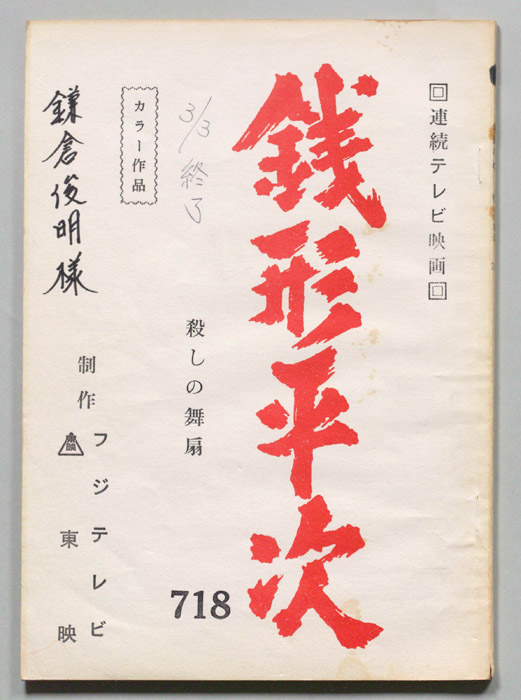 回連続テレビ映画回
銭形平次
殺しの舞扇
718
3/3 終了
カラー作品
鎌倉俊明様
制作 フジテレビ
東映